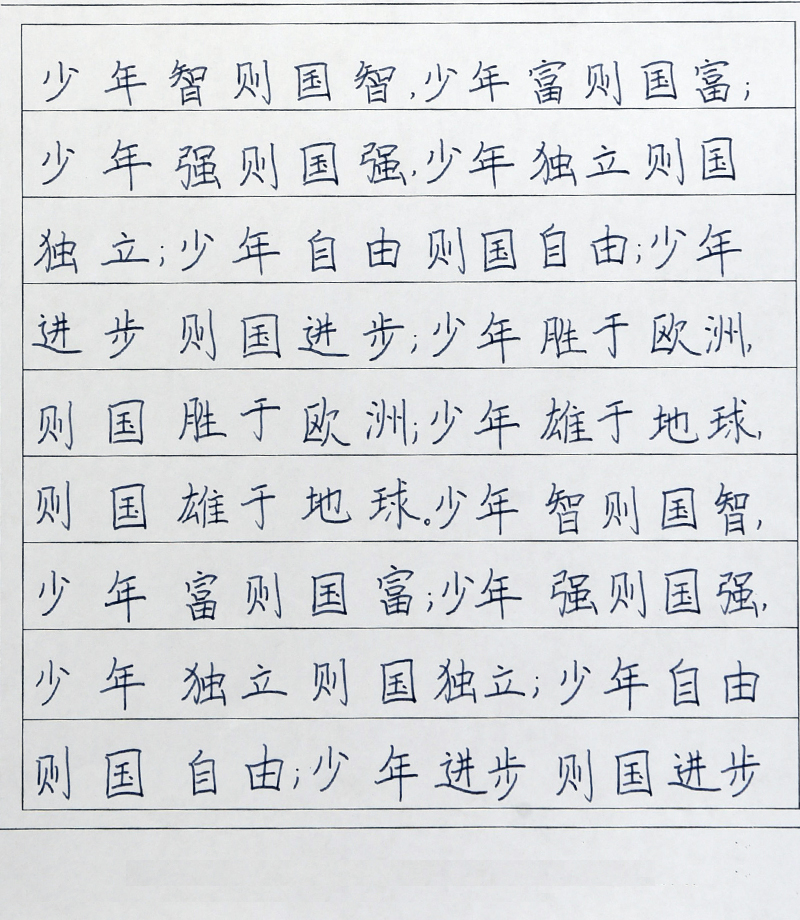 少年智则国智,少年富则国富;
少年强则国强,少年独立则国
独立;少年自由则国自由;少年
进步则国进步;少年胜于欧洲,
则国胜于欧洲;少年雄于地球,
则国雄于地球。少年智则国智,
少年富则国富;少年强则国强,
少年独立则国独立;少年自由
则国自由;少年进步则国进步